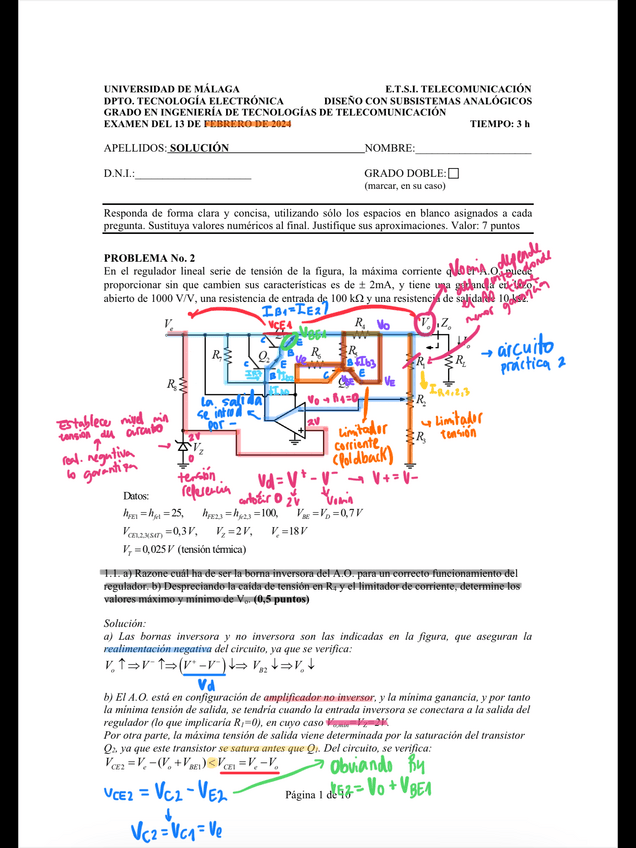 UNIVERSIDAD DE MÁLAGA E.T.S.I. TELECOMUNICACIÓN
DPTO. TECNOLOGÍA ELECTRÓNICA DISEÑO CON SUBSISTEMAS ANALÓGICOS
GRADO EN INGENIERÍA DE TECNOLOGÍAS DE TELECOMUNICACIÓN
EXAMEN DEL 13 DE FEBRERO DE 2024 TIEMPO: 3 h
APELLIDOS: SOLUCIÓN NOMBRE:
D.N.I.: GRADO DOBLE:
(marcar, en su caso)
Responda de forma clara y concisa, utilizando sólo los espacios en blanco asignados a cada
pregunta. Sustituya valores numéricos al final. Justifique sus aproximaciones. Valor: 7 puntos
PROBLEMA No. 2
En el regulador lineal serie de tensión de la figura, la máxima corriente que el A.O. puede
proporcionar sin que cambien sus características es de ± 2mA, y tiene una ganancia en lazo
abierto de 1000 V/V, una resistencia de entrada de 100 kΩ y una resistencia de salida de
Vomin depende
menor ganancia
IB1=IE2?
Ve VCE1 VBE1 R4 Vo Vo Zo
R7 Q2 R5 R1 RL
→ circuito
práctica 2
R8 R2 R3
La salida
se introd
por -
2V
Limitador
corriente
(foldback)
→ Limitador
tensión
Establece nivel min
tensión del circuito
real. negativa
lo garantiza
2V
VZ
tensión
referencia
Vd = V+ - V- → V+=V-
Datos:
hFE1 = hfe1 = 25, hFE2,3 = hfe2,3 = 100, VBE = VD = 0,7 V
VCE1,2,3(SAT) = 0,3 V, VZ = 2 V, Ve = 18 V
VT = 0,025 V (tensión térmica)
1.1. a) Razone cuál ha de ser la borna inversora del A.O. para un correcto funcionamiento del
regulador. b) Despreciando la caída de tensión en R4 y el limitador de corriente, determine los
valores máximo y mínimo de Vo. (0,5 puntos)
Solución:
a) Las bornas inversora y no inversora son las indicadas en la figura, que aseguran la
realimentación negativa del circuito, ya que se verifica:
Vo ↑ ⇒ V- ↑ ⇒ (V+ − V-) ↓ ⇒ VB2 ↓ ⇒ Vo ↓
Vd
b) El A.O. está en configuración de amplificador no inversor, y la mínima ganancia, y por tanto
la mínima tensión de salida, se tendría cuando la entrada inversora se conectara a la salida del
regulador (lo que implicaría R1=0), en cuyo caso Vo,min = VZ = 2V.
Por otra parte, la máxima tensión de salida viene determinada por la saturación del transistor
Q2, ya que este transistor se satura antes que Q1. Del circuito, se verifica:
VCE2 = Ve − (Vo + VBE1) < VCE1 = Ve − Vo
→ Obviando R4
VE2 = Vo + VBE1
VCE2 = VC2 - VE2
Página 1 de 10
VC2 = VC1 = Ve